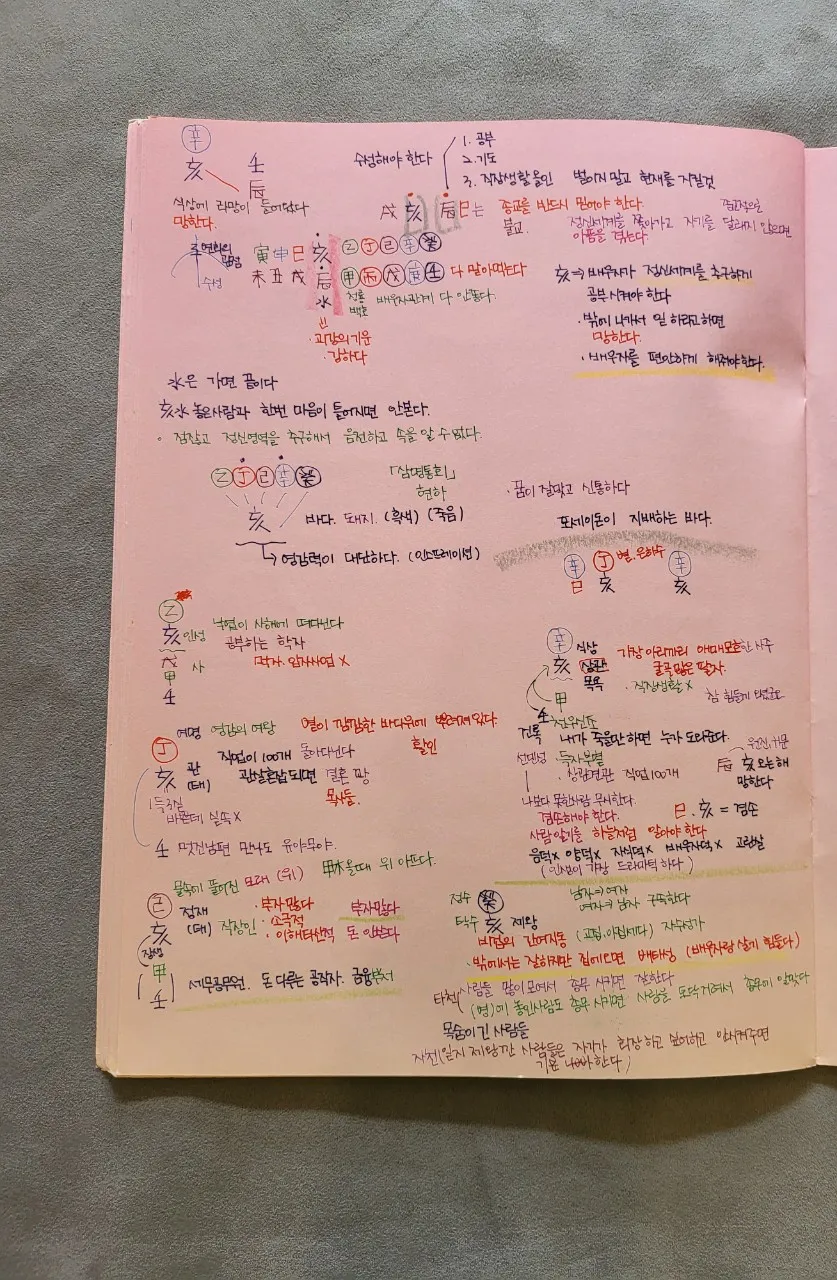 辛
亥 壬
辰
식상에 라망이 들어있다
망한다.
수성해야 한다
1. 공부
2. 기도
3. 직장생활 올인 벌이지 말고 현재를 지킬것
戌 亥 辰 巳는 종교를 반드시 믿어야 한다.
불교. 정신세계를 쫓아가고 자기를 달래지 않으면
아픔을 겪는다
수성
寅 申 巳 亥 乙 丁 己 辛 癸
未 丑 戌 辰 甲 丙 戊 庚 壬 다 말아먹는다
水 청룡 백호 배우자관계 다 안좋다.
·과감의 기운
강하다
亥 ⇒ 배우자가 정신세계를 추구하게
공부시켜야 한다
·밖에 나가서 일 하라고하면
망한다.
·배우자를 편안하게 해줘야한다.
水은 가면 끝이다
亥水 놓은사람과 한번 마음이 틀어지면 안본다.
점잖고 정신영역을 추구해서 음전하고 속을 알 수 없다.
乙 丁 己 辛 癸
「삼명통회」
현하
亥 바다. 돼지. (흑색) (죽음)
→ 영감력이 대단하다. (인스프레이션)
·꿈이 잘맞고 신통하다
포세이돈이 지배하는 바다.
辛 丁 별. 은하수 辛
巳 亥 亥
乙
亥 인성 낙엽이 사해에 떠다닌다
공부하는 학자
戊 사 학자. 임자사업 X
甲
壬
辛 식상
亥 상관 가장 아리까리 애매모호한 사주
목욕 굴곡많은 팔자.
·직장생활 X 참 힘들게
甲
壬
건록 내가 죽을만 하면 누가 도와준다.
선견성
상관견관 직업 100개
辰 亥 오는해
망한다
나보다 못한사람 무시한다.
겸손해야 한다. 巳. 亥 = 겸손
사람알기를 하늘처럼 알아야 한다
음덕X 양덕X 자식덕X 배우자덕X 고란살
(인생이 가장 드라마틱 하다)
여명 영감의 여왕 별이 깜깜한 바다위에 뿌려져 있다
丁
亥 관 직업이 100개 돌아다닌다 활인
(태) 관살혼잡되면 결혼 꽝
목사들.
바쁜데 실속 X
壬 멋진남편 만나도 유야무야.
물속에 풀어진 모래 (위) 甲木올때 위 아프다.
己 정재 ·부자많다 부자많다
亥 (태) 직장인 ·소극적
장생 ·이해타산적 돈 아낀다
甲
壬 세무공무원. 돈 다루는 공작자. 금융부서
접수 癸 남자⇒여자
여자⇒남자 구속한다
탁수 亥 제왕
비겁의 간여지동 (고집. 아집세다) 자수성가
·밖에서는 잘하지만 집에오면 배타성 (배우자랑 살기 힘들다)
타천 사람들 많이 모여서 총무 시키면 잘한다
(명)에 놓인사람도 총무 시키면 사람을 도닥거려서 총무에 알맞다
목숨이 긴 사람들
자천 (일지 제왕깐 사람들은 자기가 회장 하고 싶어하고 안시켜주면
기분 나빠한다)